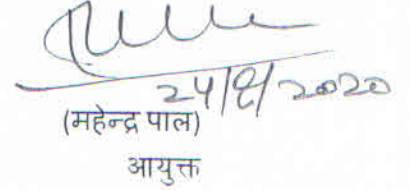 24/8/2020
(महेन्द्र पाल)
आयुक्त